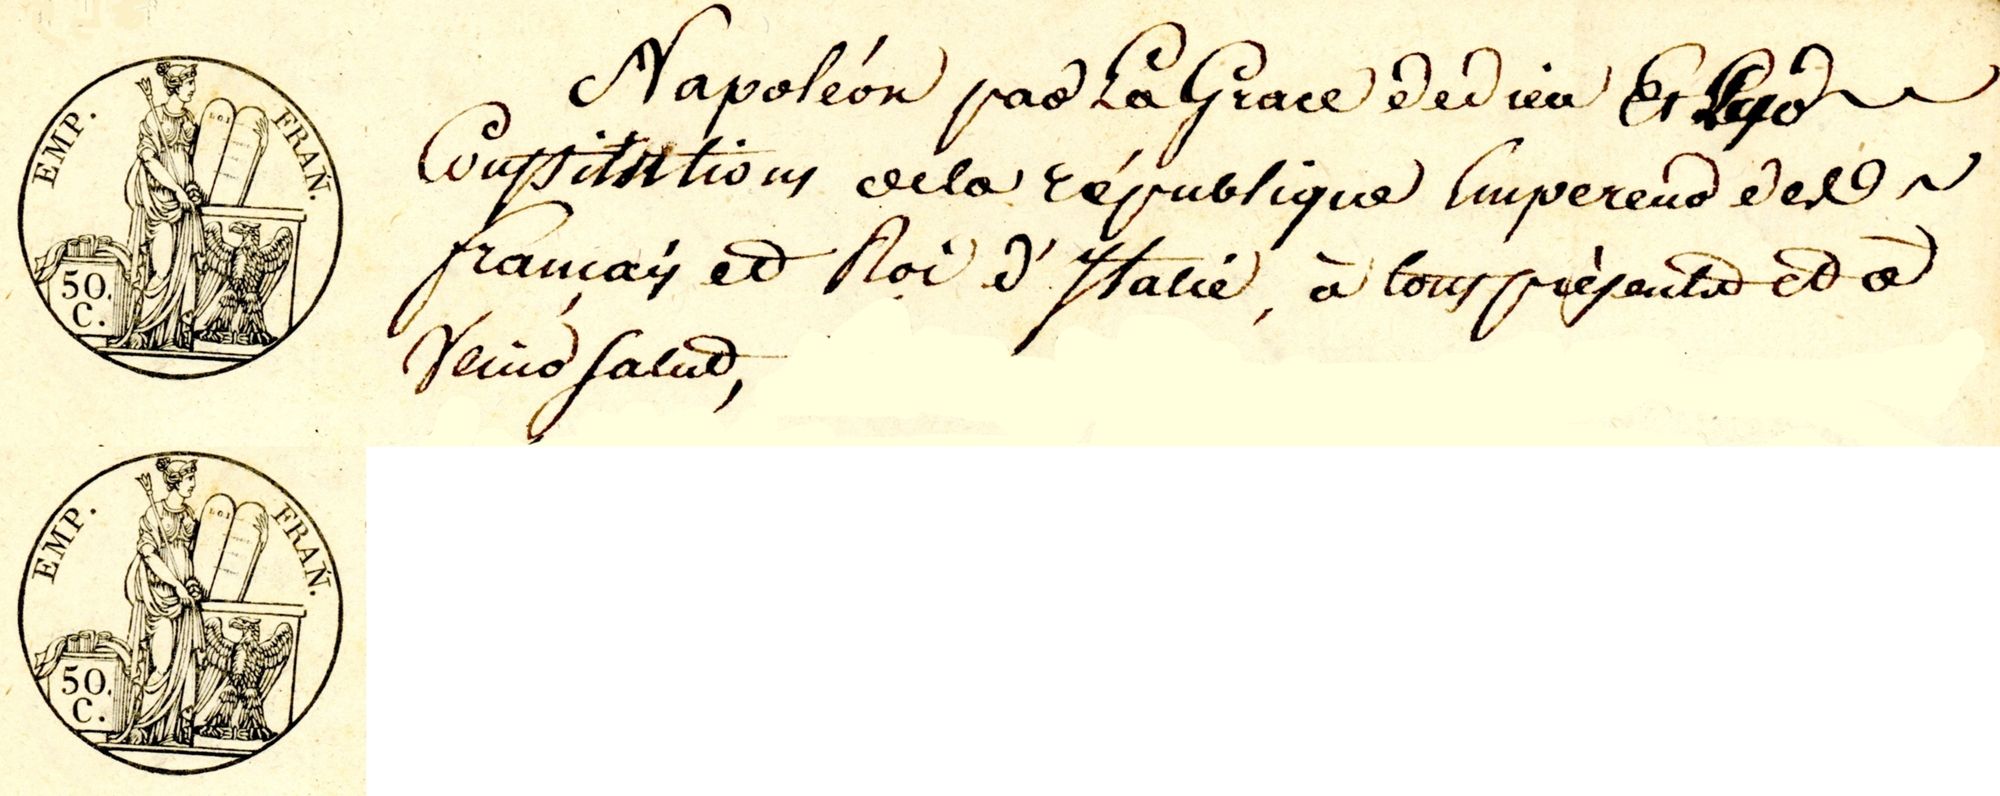 EMP. FRAN.
LOI
50.
C.
Napoléon par La Grace de dieu Et Les
Constitutions de la république Empereur des
français et Roi d'Italie, à tous présents et a
Venir Salut,
EMP. FRAN.
LOI
50.
C.